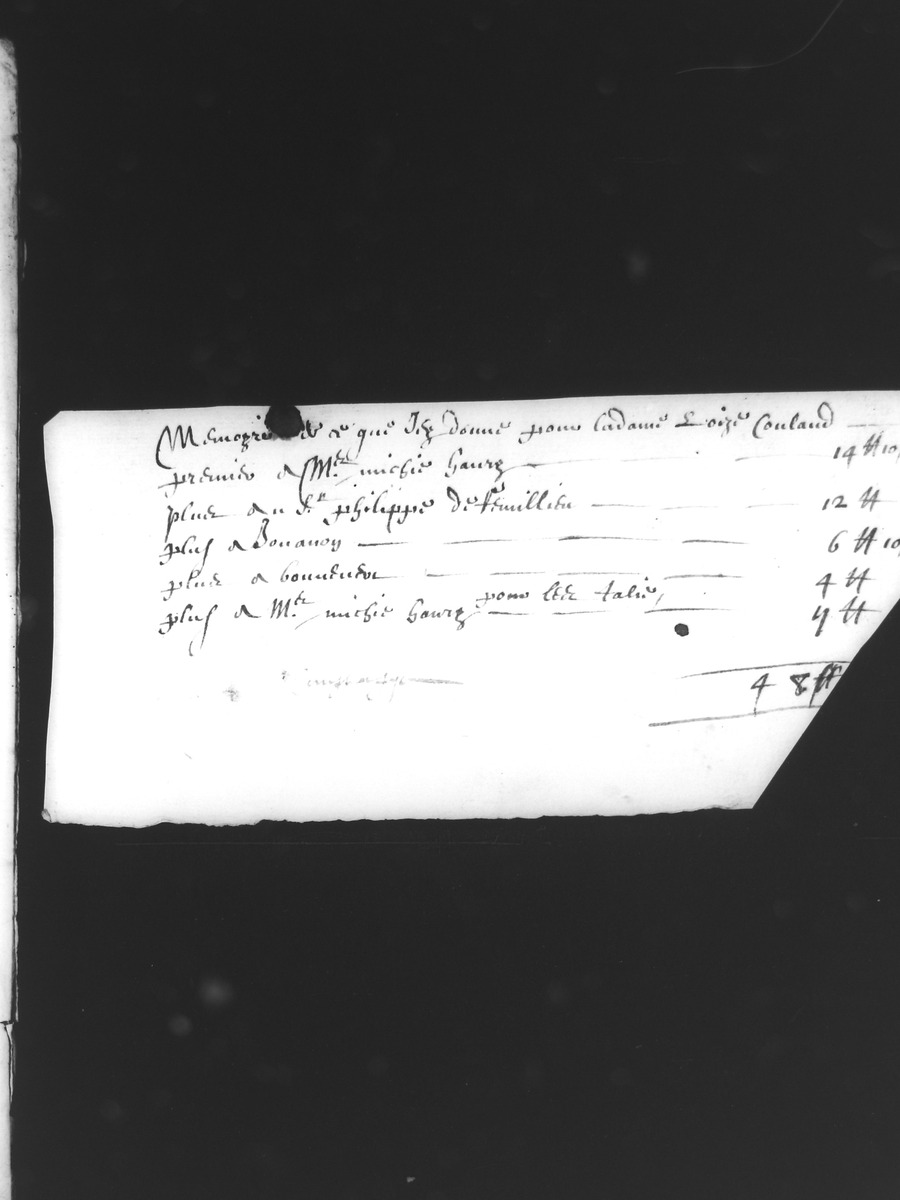 Memoyre de ce que Jey donne pour ladame Loize Couland
premier a Mer michie haury 14 ₶ 10
plus au sr philippe de 12 ₶
plus a Bonanoy 6 ₶ 10
plus a 4 ₶
plus a Mer michie haury pour les talie
48 ₶